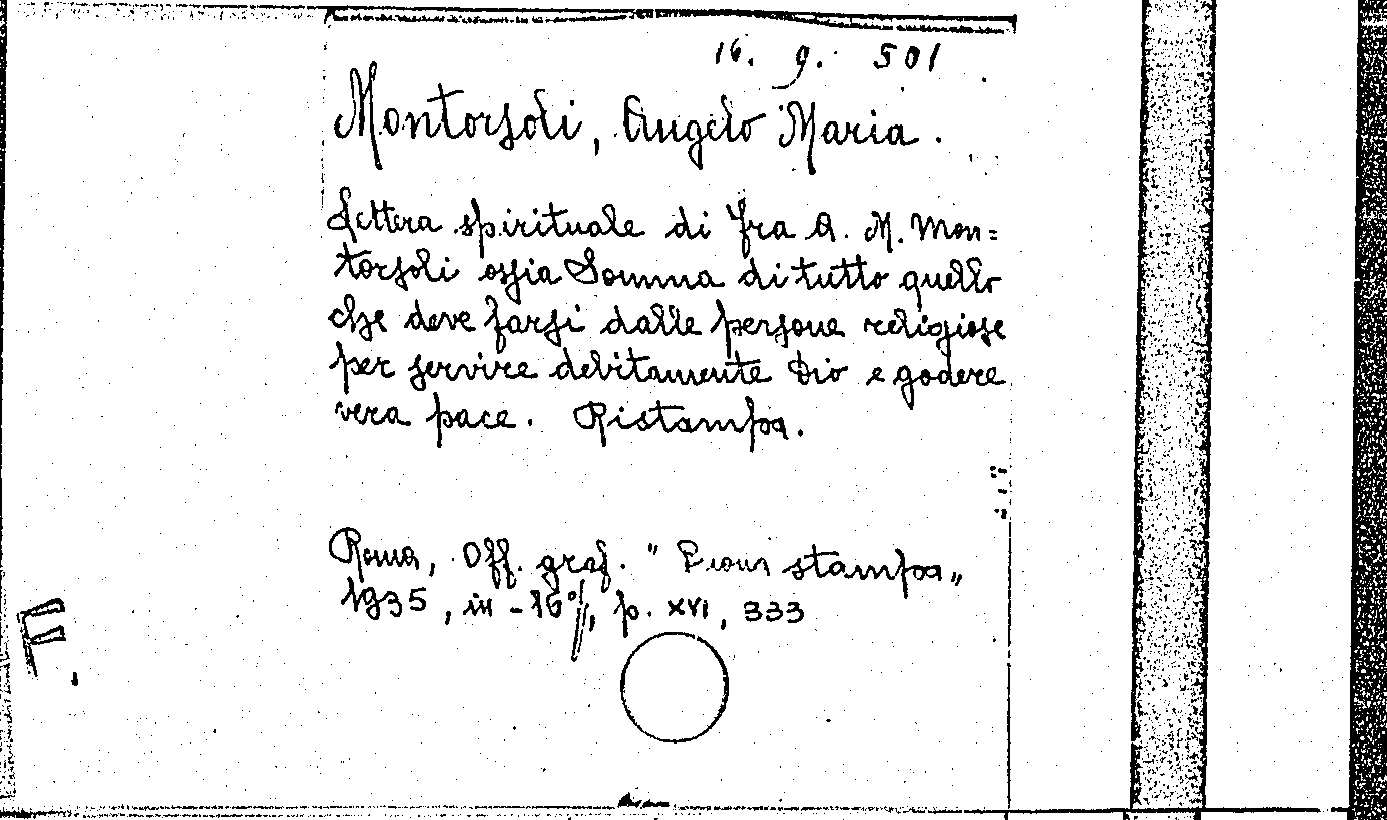 16. 9. 501
Montorsoli, Angelo Maria.
Lettera spirituale di fra A. M. Mon=
torsoli ossia Somma di tutto quello
che deve farsi dalle persone religiose
per servire debitamente Dio e godere
vera pace. Ristampa.
Roma, Off. graf. " stampa„
1935, in-16°, p. XVI, 333
F.